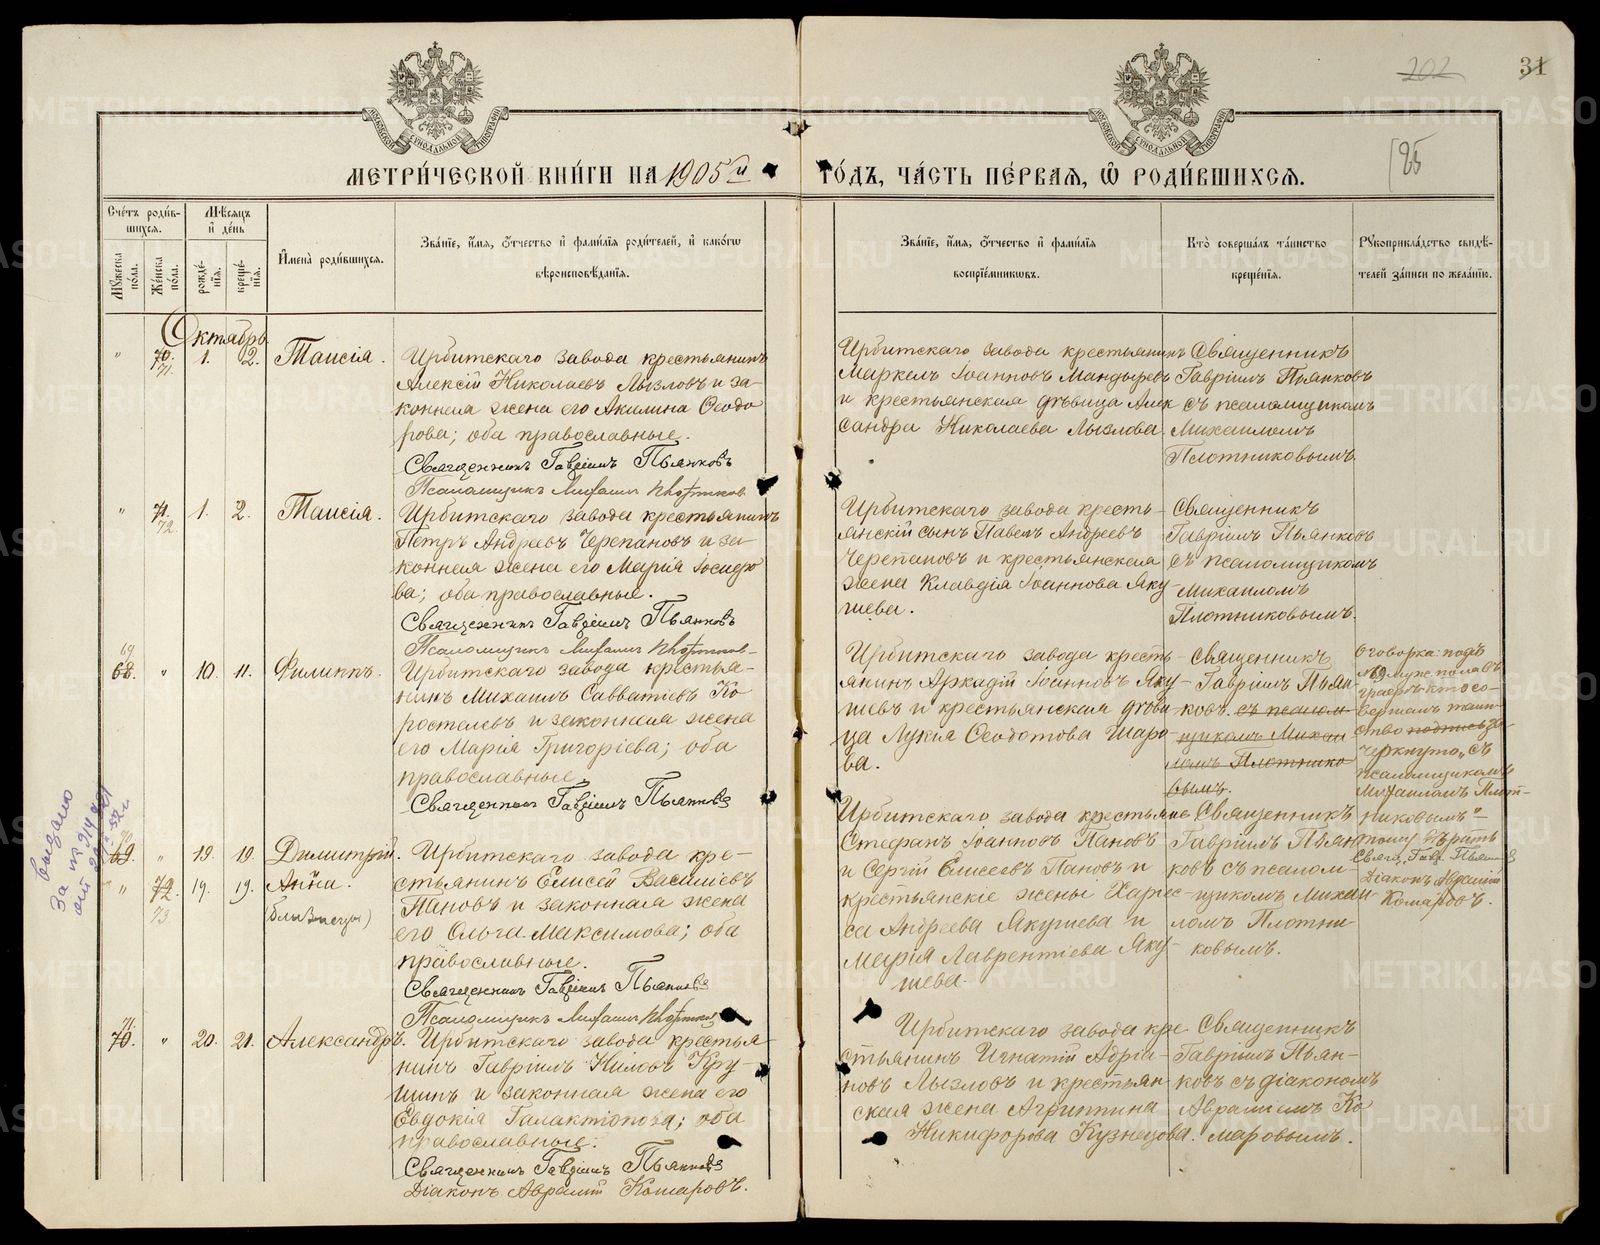 202
31
МОСКОВСКОЙ СѴНОДАЛЬНОЙ ТИПОГРАФІИ
МОСКОВСКОЙ СѴНОДАЛЬНОЙ ТИПОГРАФІИ
85
МЕТРИ́ЧЕСКОЙ КНИ́ГИ НА 1905й ГО́ДЪ, ЧА́СТЬ ПЕ́РВАЯ, Ѡ РОДИ́ВШИХСЯ.
Сче́тъ роди́в-
шихся.
Мꙋжеска по́ла.
Же́нска по́ла.
Мѣ́сяцъ и́ де́нь
рожде́-
нія.
креще́-
нія.
И҆мена̀ роди́вшихся.
Зва́ніе, и҆́мя, ѻ҆́тчество и҆ фами́лія роди́телей, и҆ како́гѡ
вѣроисповѣ́данія.
Зва́ніе, и҆́мя, ѻ҆́тчество и҆ фами́лія
воспріе́мникѡвъ.
Кто̀ соверша́лъ та́инство
креще́нія.
Рꙋкоприкла́дство свидѣ́-
телей за́писи по жела́нію.
Октябрь
" 70. 71. 1. 2. Таисія.
Ирбитскаго завода крестьянинъ
Алексій Николаевъ Лызловъ и за-
конная жена его Акилина Ѳеодо
рова; оба православные.
Священникъ Гавріилъ Пьянковъ
Псаломщикъ Михаилъ Плотников
Ирбитскаго завода крестьянинъ
Маркелъ Іоанновъ Мандыревъ
и крестьянская дѣвица Алек
сандра Николаева Лызлова.
Священникъ
Гавріилъ Пьянковъ
съ псаломщикомъ
Михаиломъ
Плотниковымъ.
" 71. 72. 1. 2. Таисія.
Ирбитскаго завода крестьянинъ
Петръ Андреевъ Черепановъ и за-
конная жена его Марія Іосифо
ва; оба православные.
Священникъ Гавріилъ Пьянковъ
Псаломщикъ Михаилъ Плотников
Ирбитскаго завода кресть-
янскій сынъ Павелъ Андреевъ
Черепановъ и крестьянская
жена Клавдія Іоаннова Яку-
шева.
Священникъ
Гавріилъ Пьянковъ
съ псаломщикомъ
Михаиломъ
Плотниковымъ.
69
68. " 10. 11. Филиппъ.
Ирбитскаго завода крестья-
нинъ Михаилъ Савватіевъ Ко
ростелевъ и законная жена
его Марія Григоріева; оба
православные.
Священникъ Гавріилъ Пьянковъ
Ирбитскаго завода кресть-
янинъ Аркадій Іоанновъ Яку-
шевъ и крестьянская дѣви
ца Лукія Ѳеодотова Шаро
ва.
Священникъ
Гавріилъ Пьян-
ковъ. съ псалом-
щикомъ Михаи
ломъ Плотнико
вымъ.
Оговорка: подъ
№ 69 муже пола въ
графѣ кто со-
вершалъ таин-
ство подпись за-
черкнуто „съ
псаломщикомъ
Михаиломъ Плот-
никовымъ"
тому вѣрить
Свящ. Гавр. Пьянков
Діаконъ Авраамій
Комаровъ.
Выдано
за №
70
69. " 19. 19. Димитрій.
" 72. 73 19. 19. Анна.
(близнецы)
Ирбитскаго завода кре-
стьянинъ Елисей Василіевъ
Пановъ и законная жена
его Ольга Максимова; оба
православные.
Священникъ Гавріилъ Пьянковъ
Псаломщикъ Михаилъ Плотников
Ирбитскаго завода крестьяне
Стефанъ Іоанновъ Пановъ
и Сергій Елисеевъ Пановъ и
крестьянскіе жены Харис-
са Андреева Якушева и
Марія Лаврентіева Яку-
шева.
Священникъ
Гавріилъ Пьян
ковъ съ псалом-
щикомъ Михаи-
ломъ Плотни-
ковымъ.
71.
70. " 20. 21. Александръ.
Ирбитскаго завода крестья-
нинъ Гавріилъ Ниловъ Кру-
шинъ и законная жена его
Евдокія Галактіонова; оба
православные.
Священникъ Гавріилъ Пьянковъ
Діаконъ Авраамій Комаровъ.
Ирбитскаго завода кре-
стьянинъ Игнатій Адріа-
новъ Лызловъ и крестьян
ская жена Агриппина
Никифорова Кузнецова.
Священникъ
Гавріилъ Пьян-
ковъ съ діакономъ
Авраміемъ Ко
маровымъ.
METRIKI.GASO-URAL.RU